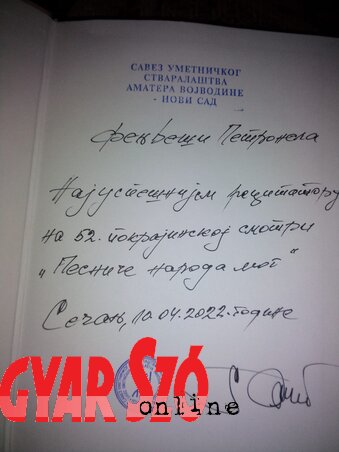 САВЕЗ УМЕТНИЧКОГ
СТВАРАЛАШТВА
АМАТЕРА ВОЈВОДИНЕ
- НОВИ САД
Фењвеши Петронела
Најуспешнијем рецитатору
на 52. покрајинској смотри
„Песниче народа мог"
Сечањ, 10.04.2022. године
GYAR SZÓ
online